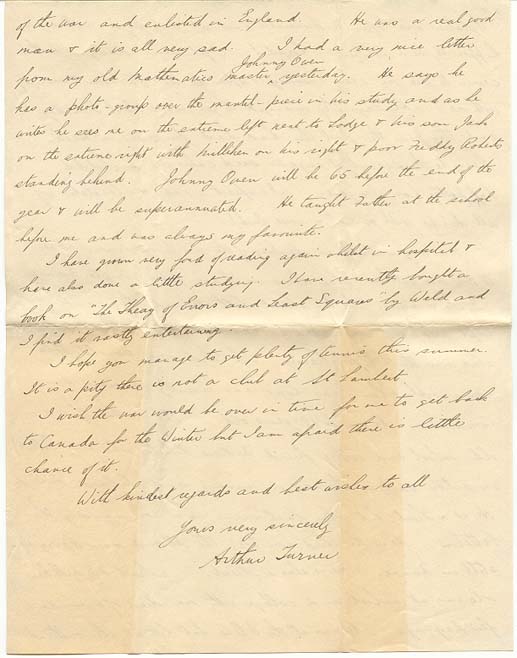 of the war and enlisted in England. He was a real good
man & it is all very sad. I had a very nice letter
Johnny Owen
from my old Mathematics master ^ yesterday. He says he
has a photo-group over the mantel-piece in his study and as he
writes he sees me on the extreme left next to Lodge & his son Jack
on the extreme right with Milliken on his right & poor Freddy Roberts
standing behind. Johnny Owen will be 65 before the end of the
year & will be superannuated. He taught Father at the school
before me and was always my favourite.
I have grown very fond of reading again whilst in hospital &
have also done a little studying. I have recently bought a
book on "The Theory of Errors and Least Squares by Weld and
I find it vastly entertaining.
I hope you manage to get plenty of tennis this summer.
It is a pity there is not a club at St Lambert
I wish the war would be over in time for me to get back
to Canada for the Winter but I am afraid there is little
chance of it.
With kindest regards and best wishes to all
Yours very sincerely
Arthur Turner